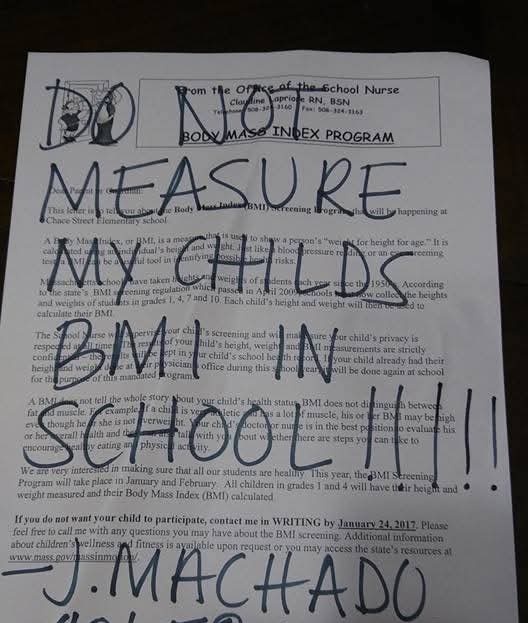 From the Office of the School Nurse
DO NOT
Claudine Lapriore RN, BSN
Telephone 508-324-3160 Fax: 508-324-3163
BODY MASS INDEX PROGRAM
MEASURE
Dear Parent or Guardian:
This letter is to tell you about the Body Mass Index (BMI) Screening Program that will be happening at
Chace Street Elementary school.
A Body Mass Index, or BMI, is a measure that is used to show a person's "weight for height for age." It is
calculated using an individual's height and weight. Just like a blood pressure reading or an eye screening
test, a BMI can be a useful tool in identifying possible health risks.
MY CHILDS
Massachusetts schools have taken heights and weights of students each year since the 1950s. According
to the state's BMI screening regulation which passed in April 2009, schools now collect the heights
and weights of students in grades 1, 4, 7 and 10. Each child's height and weight will then be used to
calculate their BMI.
BMI IN
The School Nurse will supervise your child's screening and will make sure your child's privacy is
respected at all times. The results of your child's height, weight and BMI measurements are strictly
confidential – the are kept in your child's school health If your child already had their
height and weight done at physician's office during this school year, will be done again at school
for the purpose of this mandated program.
SCHOOL!!!!!!
A BMI does not tell the whole story about your child's health status. BMI does not distinguish between
fat and muscle. For example, if a child is very athletic and has a lot of muscle, his or her BMI may be high
even though he or she is not overweight. Your child's doctor or nurse is in the best position to evaluate his
or her overall health and with you about whether there are steps you can take to
encourage healthy eating and physical activity.
We are very interested in making sure that all our students are healthy. This year, the BMI Screening
Program will take place in January and February. All children in grades 1 and 4 will have their height and
weight measured and their Body Mass Index (BMI) calculated.
If you do not want your child to participate, contact me in WRITING by January 24, 2017. Please
feel free to call me with any questions you may have about the BMI screening. Additional information
about children's wellness and fitness is available upon request or you may access the state's resources at
www.mass.gov/massinmotion/.
-J. MACHADO